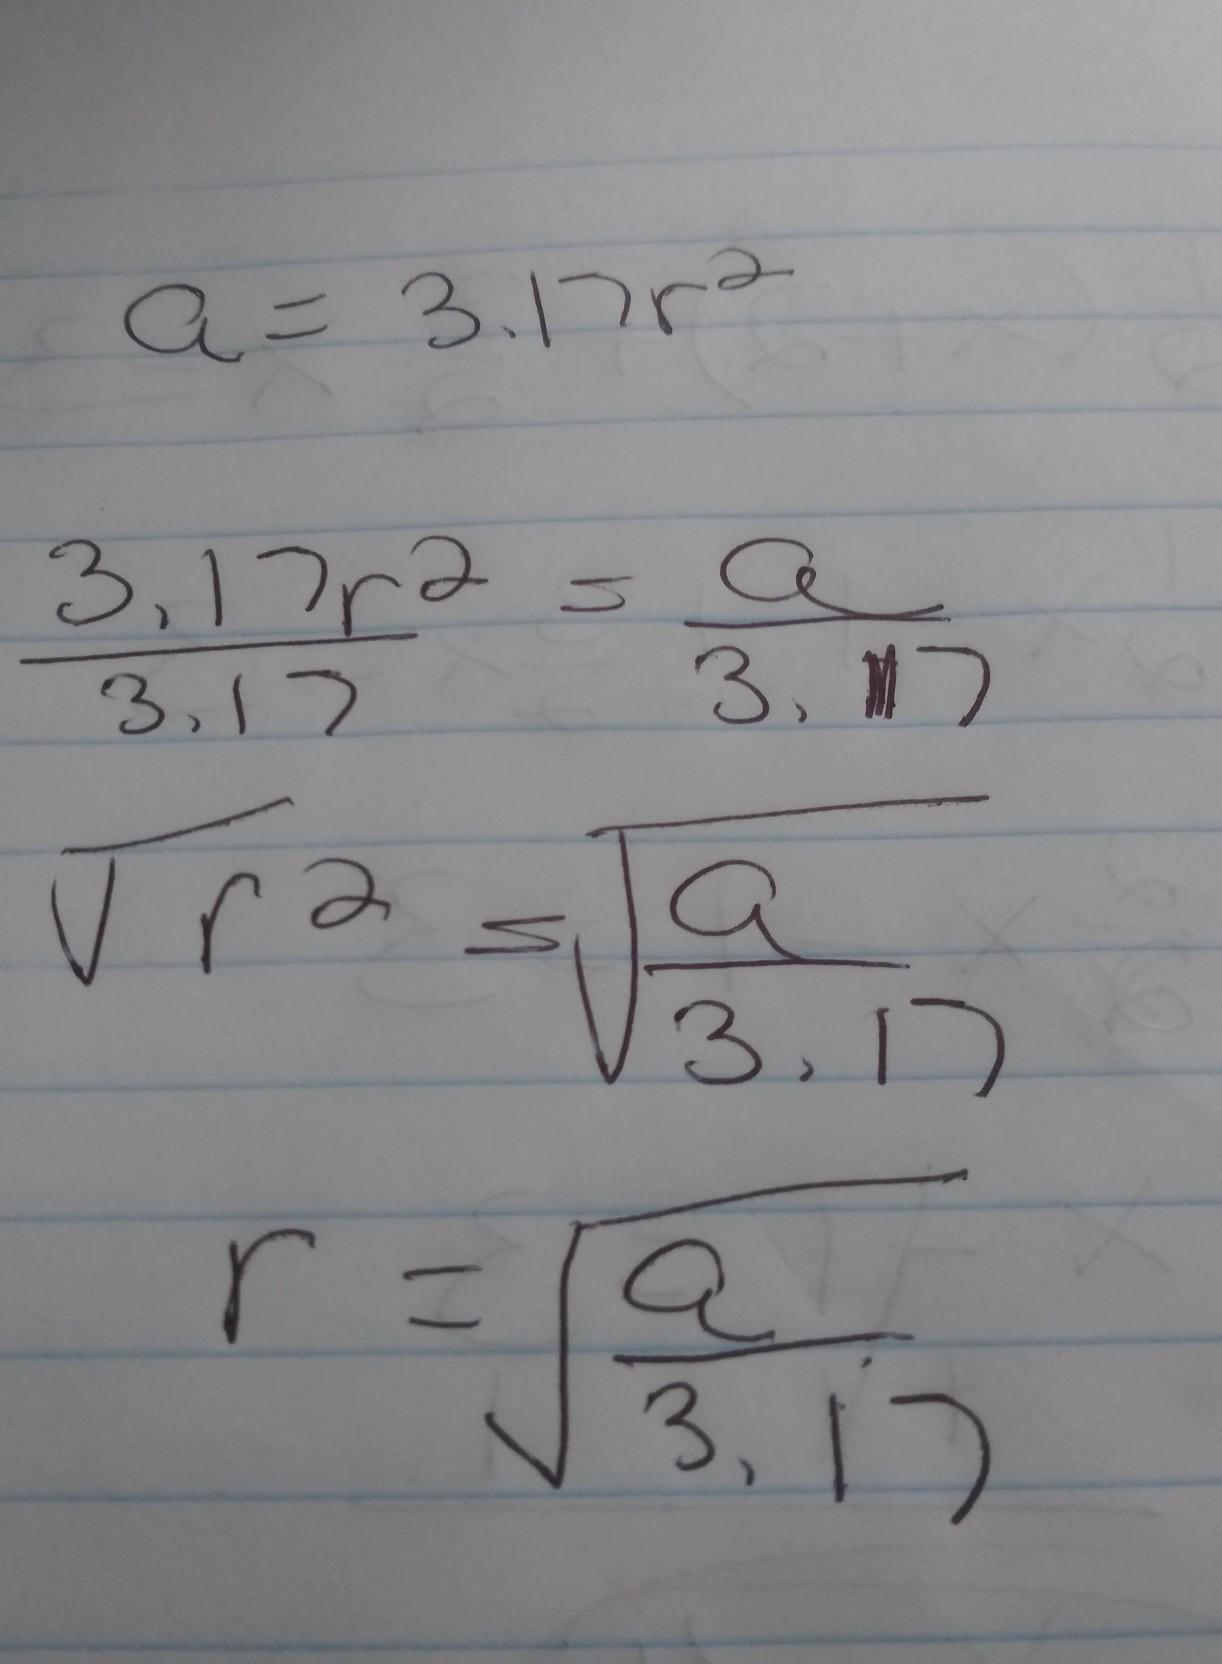 a = 3.17r²
3.17r²/3.17 = a/3.17
√r² = √(a/3.17)
r = √(a/3.17)